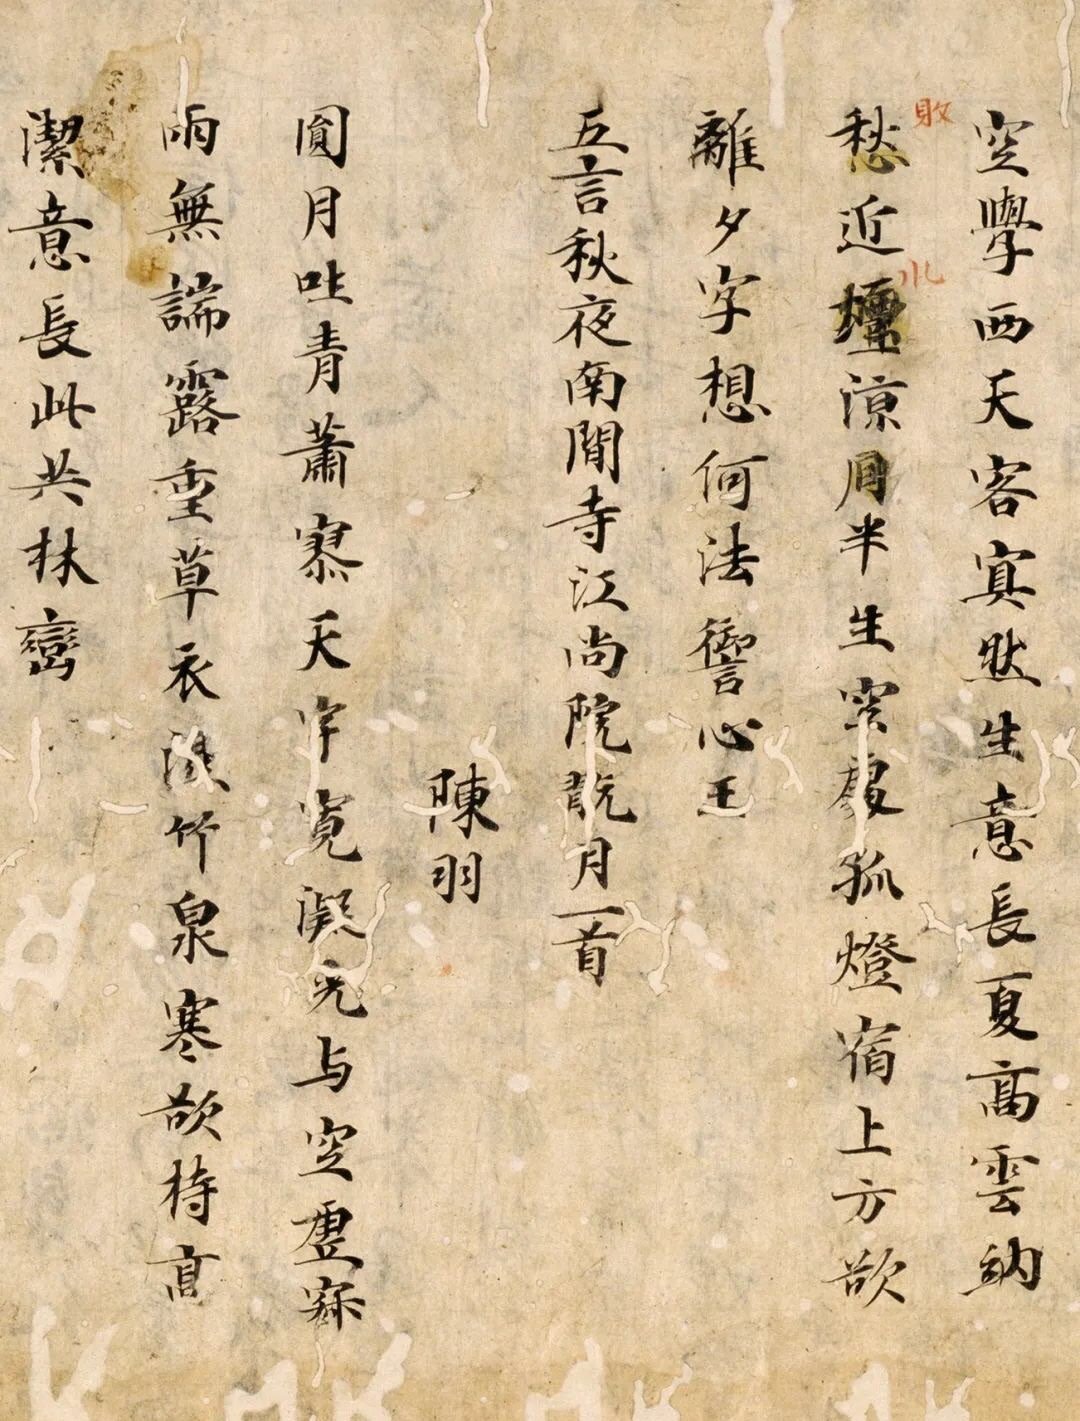 空學西天客㝠然生意長夏高雲納
敗
愁近壇涼月半生空處孤燈宿上方欲
水
離夕字想何法心王
五言秋夜南閒寺江尚院翫月一首
陳羽
圓月吐青蕭寥天宇寬凝光与空虛寂
雨無端露重草衣濕竹泉寒欲持高
潔意長此共林巒